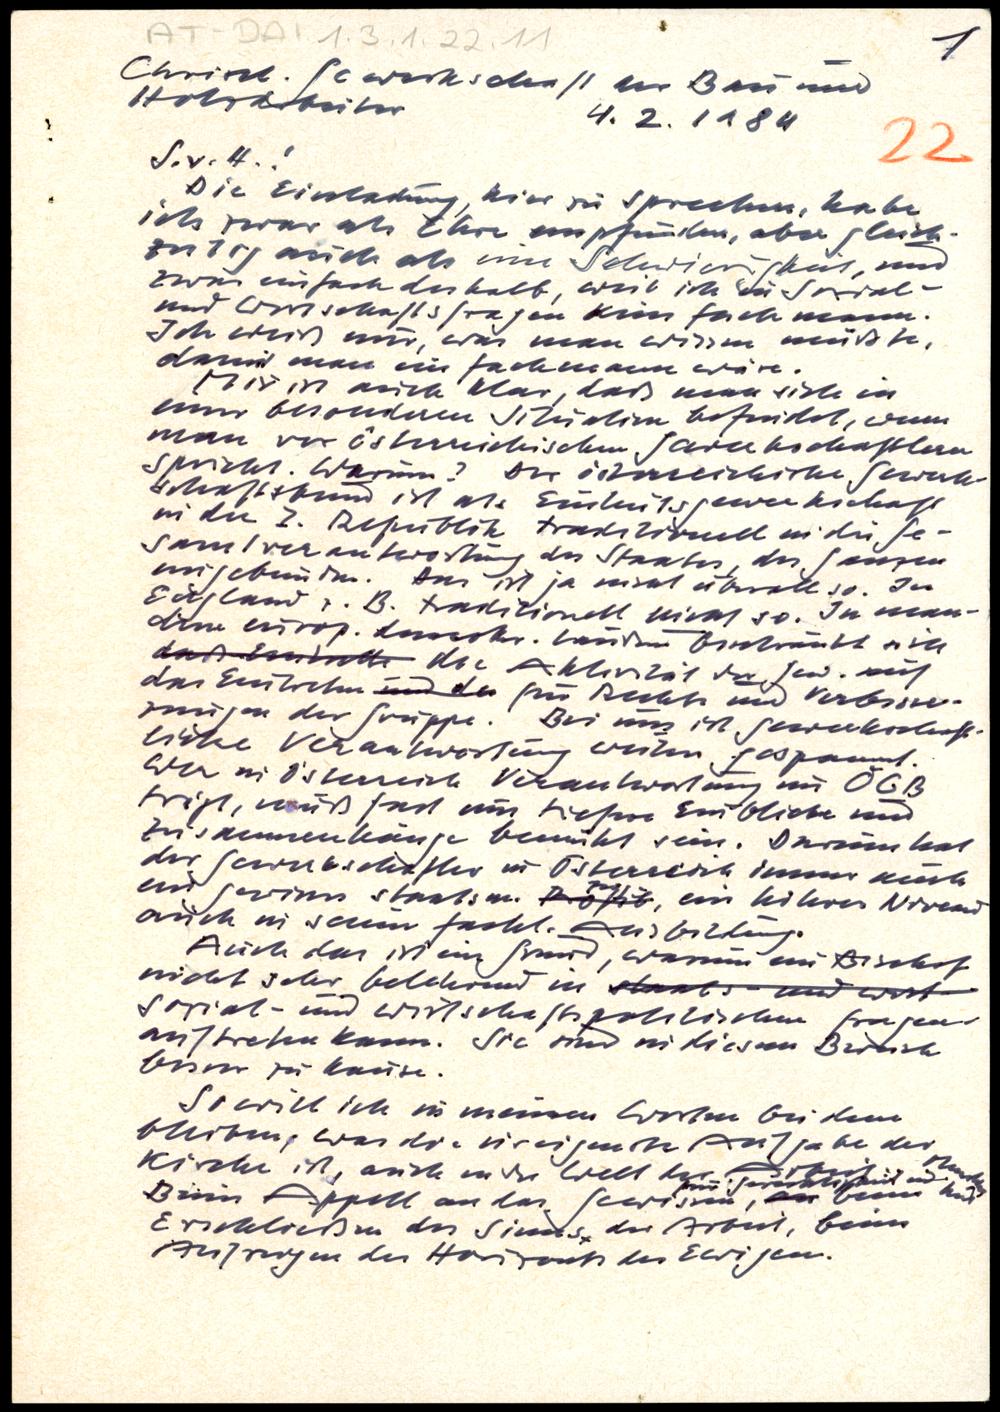 AT-DAI 1.3.1.22.11
1
Christl. Gewerkschaft der Bau und
Holzarbeiter
4. 2. 1984
22
S.v.H.!
Die Einladung, hier zu sprechen, habe
ich zwar als Ehre empfunden, aber gleich-
zeitig auch als eine Schwierigkeit, und
zwar einfach deshalb, weil ich in Sozial-
und Wirtschaftsfragen kein Fachmann.
Ich weiß nur, was man wissen müßte,
damit man ein Fachmann wäre.
Mir ist auch klar, daß man sich in
einer besonderen Situation befindet, wenn
man vor österreichischen Gewerkschaftlern
spricht. Warum? Der österreichische Gewerk-
schaftsbund ist als Einheitsgewerkschaft
in der 2. Republik traditionell in die Ge-
samtverantwortung des Staates, des Ganzen
eingebunden. Das ist ja nicht überall so. In
England z. B. traditionell nicht so. In man-
chen europ. demokr. Ländern beschränkt sich
die Aktivität der Gew. auf
das Eintreten und der für Rechte und Verbesse-
rungen der Gruppe. Bei uns ist gewerkschaft-
liche Verantwortung weiter gespannt.
Wer in Österreich Verantwortung im ÖGB
trägt, muß fast um tiefere Einblicke und
Zusammenhänge bemüht sein. Darum hat
der Gewerkschafter in Österreich immer auch
ein gewisses staatsm. ein höheres Niveau
auch in seiner fachl. Ausbildung.
Auch das ist ein Grund, warum ein Bischof
nicht sehr belehrend in staats- und wirt-
sozial- und wirtschaftspolitischen Fragen
auftreten kann. Sie sind in diesem Bereich
besser zu Hause.
So will ich in meinen Worten bei dem
bleiben, was die ureigenste Aufgabe der
Kirche ist, auch in der Welt der Arbeit:
Beim Appell an das Gewissen, beim
Erschließen des Sinns der Arbeit, beim
Aufzeigen des Horizonts des Ewigen.